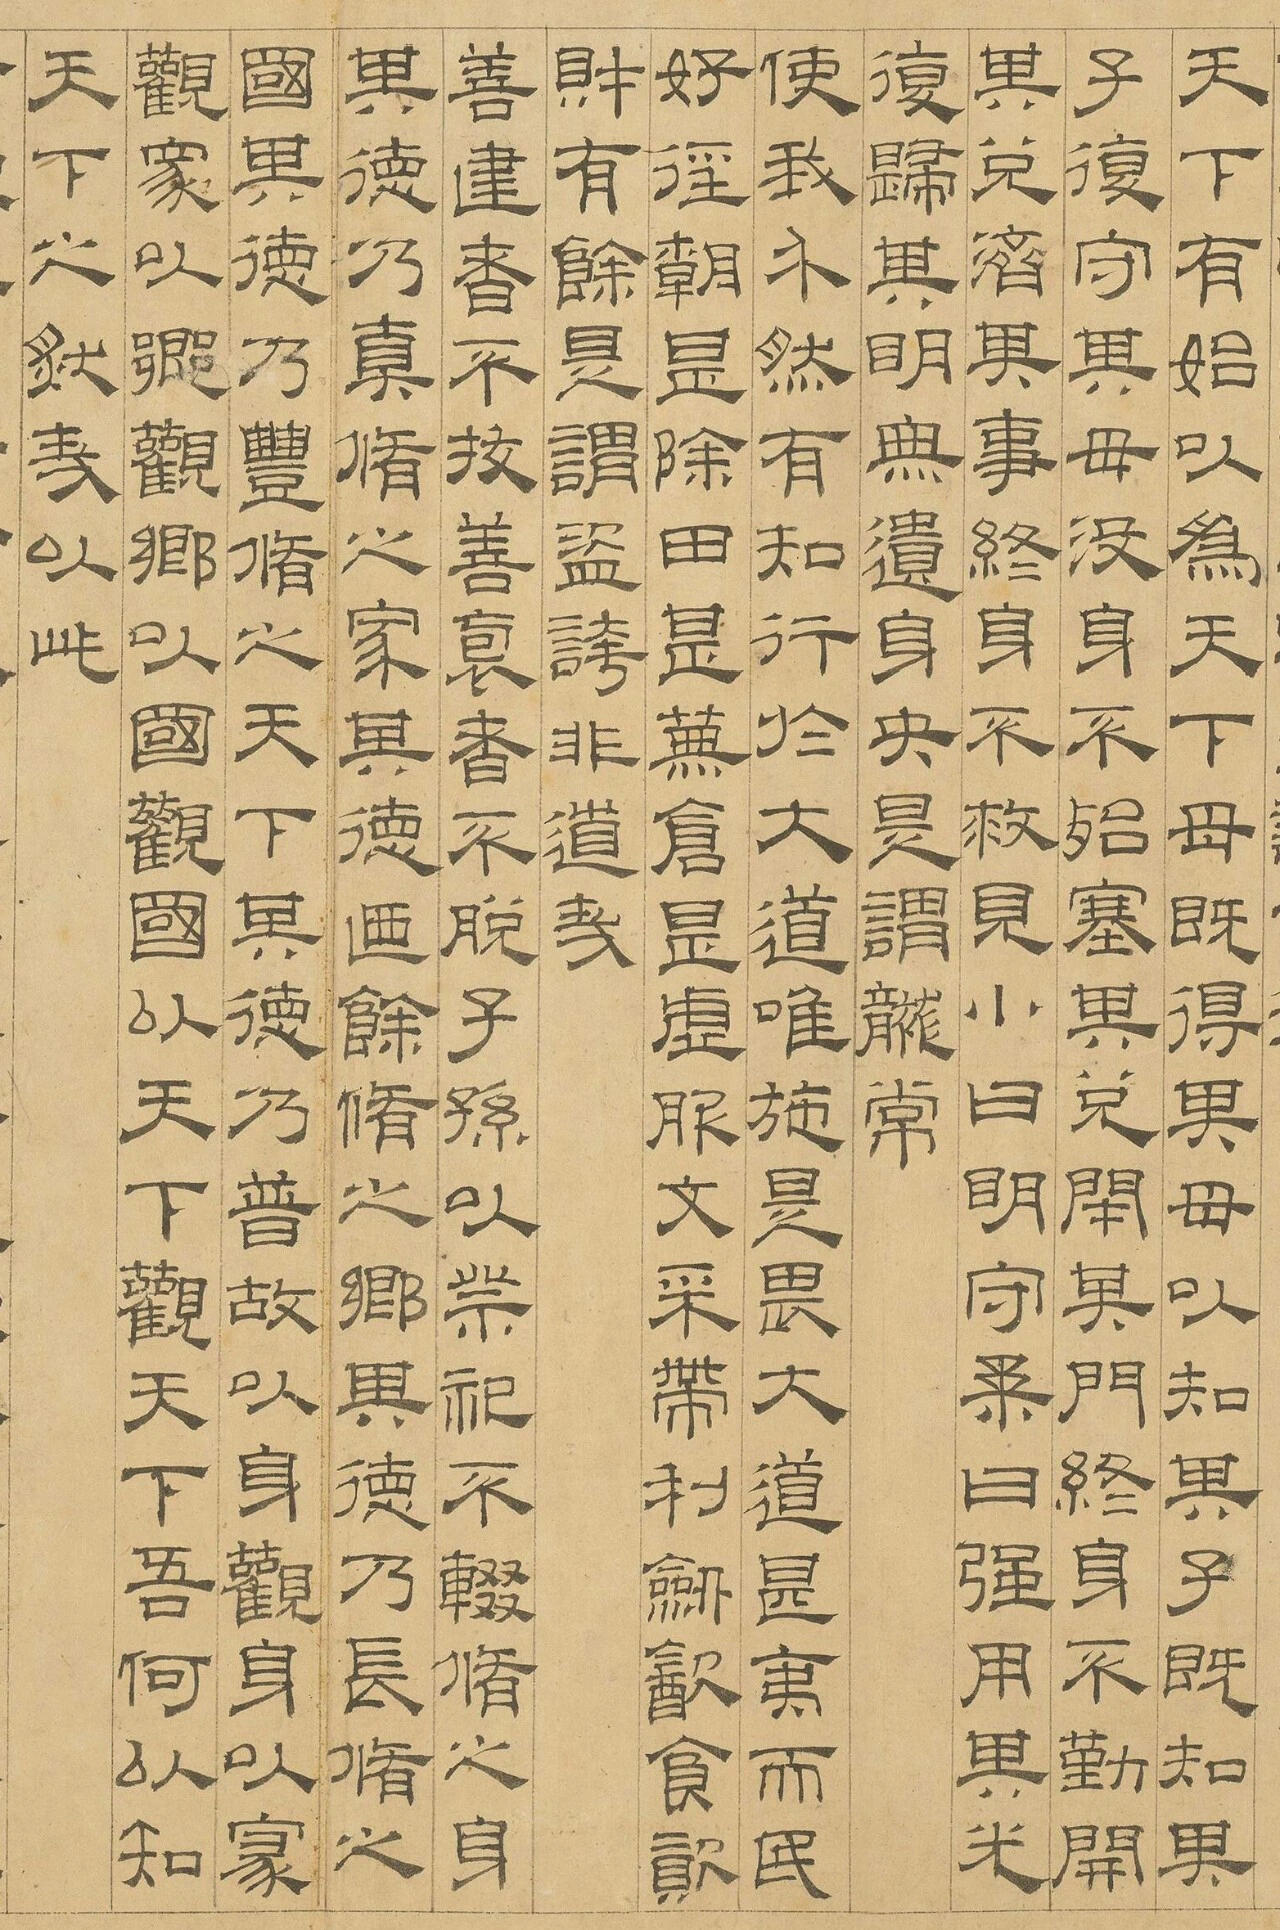 天下有始以爲天下母既得其母以知其子既知其
子復守其母没身不殆塞其兌閉其門終身不勤開
其兌濟其事終身不救見小曰明守柔曰强用其光
復歸其明無遺身央是謂襲常
使我介然有知行於大道唯施是畏大道甚夷而民
好徑朝甚除田甚蕪倉甚虛服文采帶利劍食
財有餘是謂盜誇非道哉
善建者不拔善裒者不脱子孫以祭祀不輟脩之身
其德乃真脩之家其德迺餘脩之鄉其德乃長脩之
國其德乃豐脩之天下其德乃普故以身觀身以家
觀家以鄉觀鄉以國觀國以天下觀天下吾何以知
天下之然哉以此